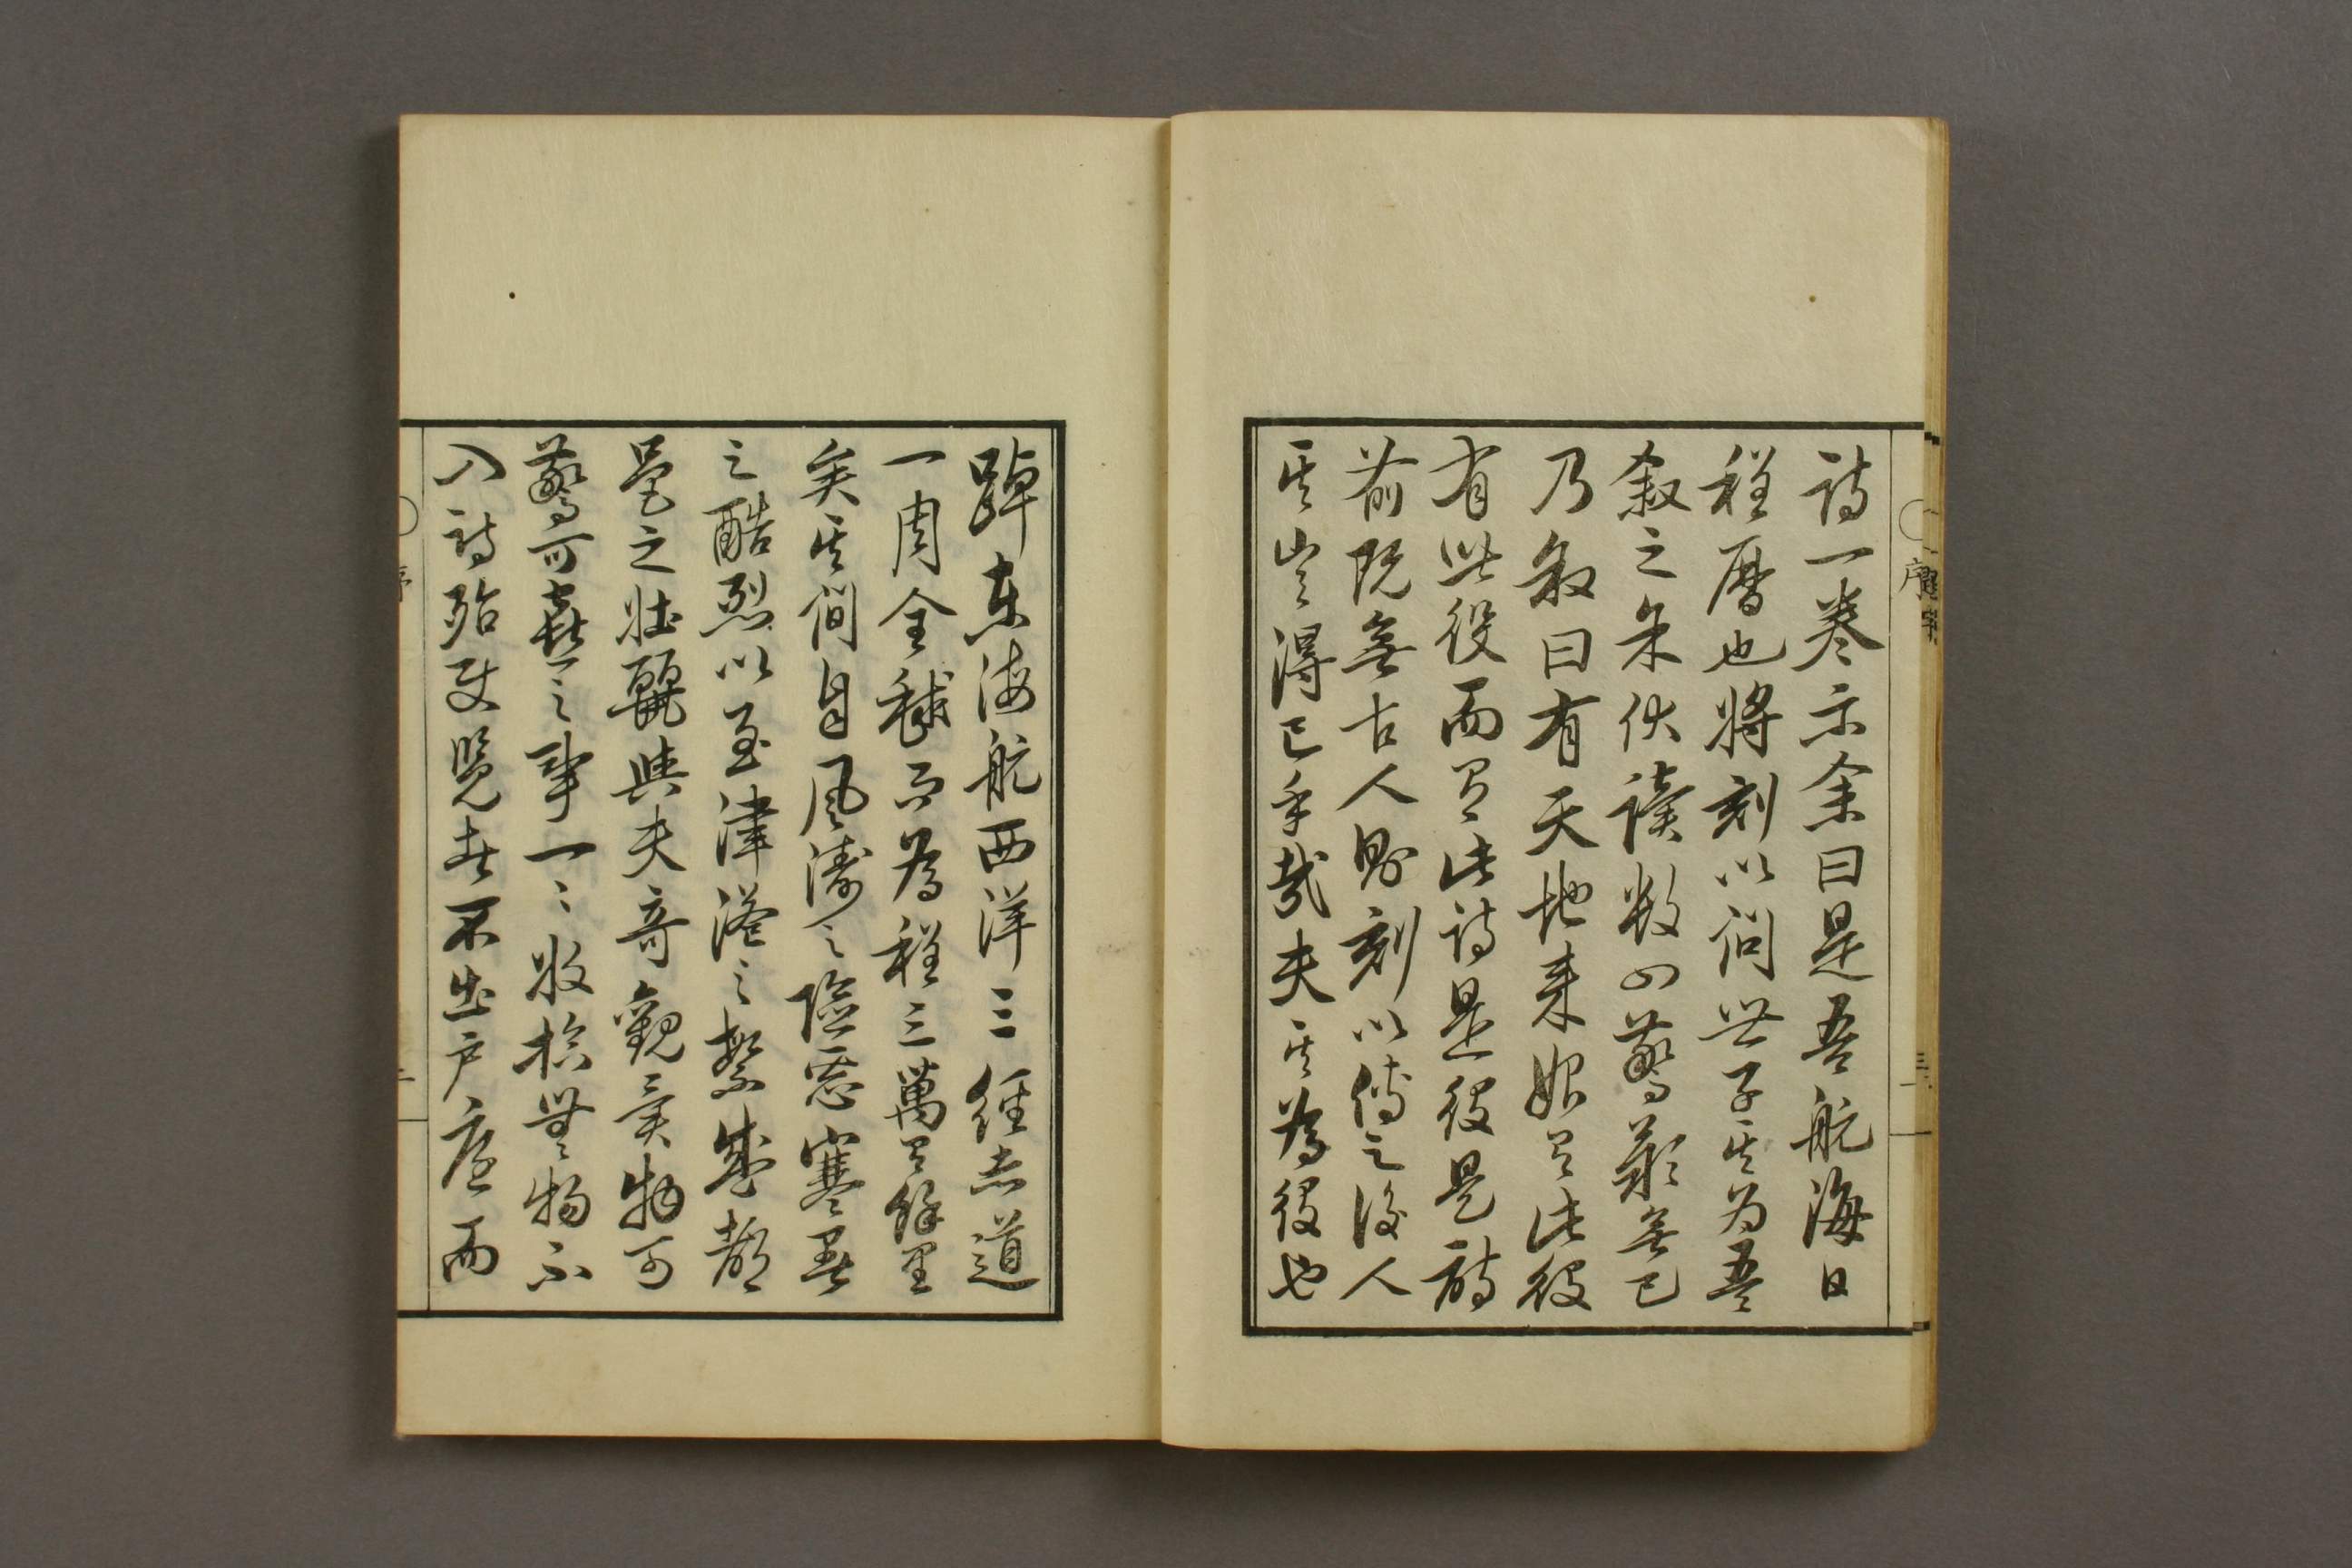 詩一卷示余曰是吾航海日
程曆也將刻以問世子其为吾
叙之朱伏讀數四驚歎無已
乃叙曰有天地来始有此役
有此役而有此詩是役是詩
前既無古人則刻以傳之後人
其豈得已乎哉夫其為役也
踔東海航西洋三經赤道
一周全毬而為程三萬有餘里
矣其間自風濤之險惡寒暑
之酷烈以至津港之繁盛都
邑之壯麗與夫奇觀異物可
驚可喜之事一々收拾無物不
入詩殆使覽者不出戶庭而
序
三